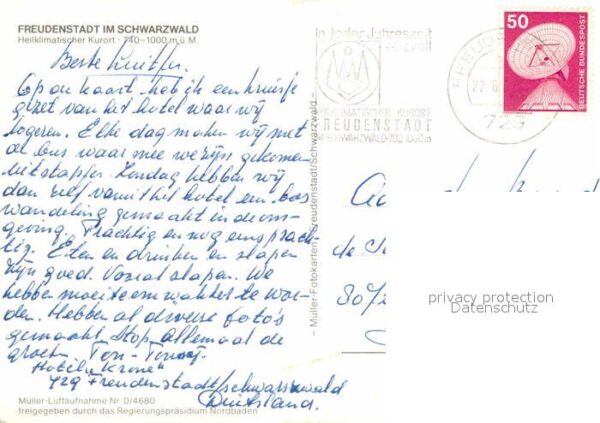 FREUDENSTADT IM SCHWARZWALD
Heilklimatischer Kurort · 740-1000 m ü. M.
Beste
Op de kaart heb ik een kruisje
gezet van het hotel waar wij
logeren. Elke dag maken wij met
de bus waar mee we zijn gekomen
uitstapjes. Zondag hebben wij
dan zelf vanuit het hotel een bos
wandeling gemaakt in de om-
geving. Prachtig en nog eens prach-
tig. Eten en drinken en slapen
zijn goed. Vooral slapen. We
hebben moeite om wakker te wor-
den. Hebben al diverse foto's
gemaakt. Stop. allemaal de
groeten. Ton -
Hotel "Krone"
729 Freudenstadt/schwarzwald
Duitsland.
Müller-Luftaufnahme Nr. 0/4680
freigegeben durch das Regierungspräsidium Nordbaden
– Müller-Fotokarten, Freudenstadt/Schwarzwald –
In jeder Jahreszeit
reizvoll
HEILKLIMATISCHER KURORT
FREUDENSTADT
SCHWARZWALD·700-1000m
FREUDEN
22.6
729
50
DEUTSCHE BUNDESPOST
de
privacy protection
Datenschutz